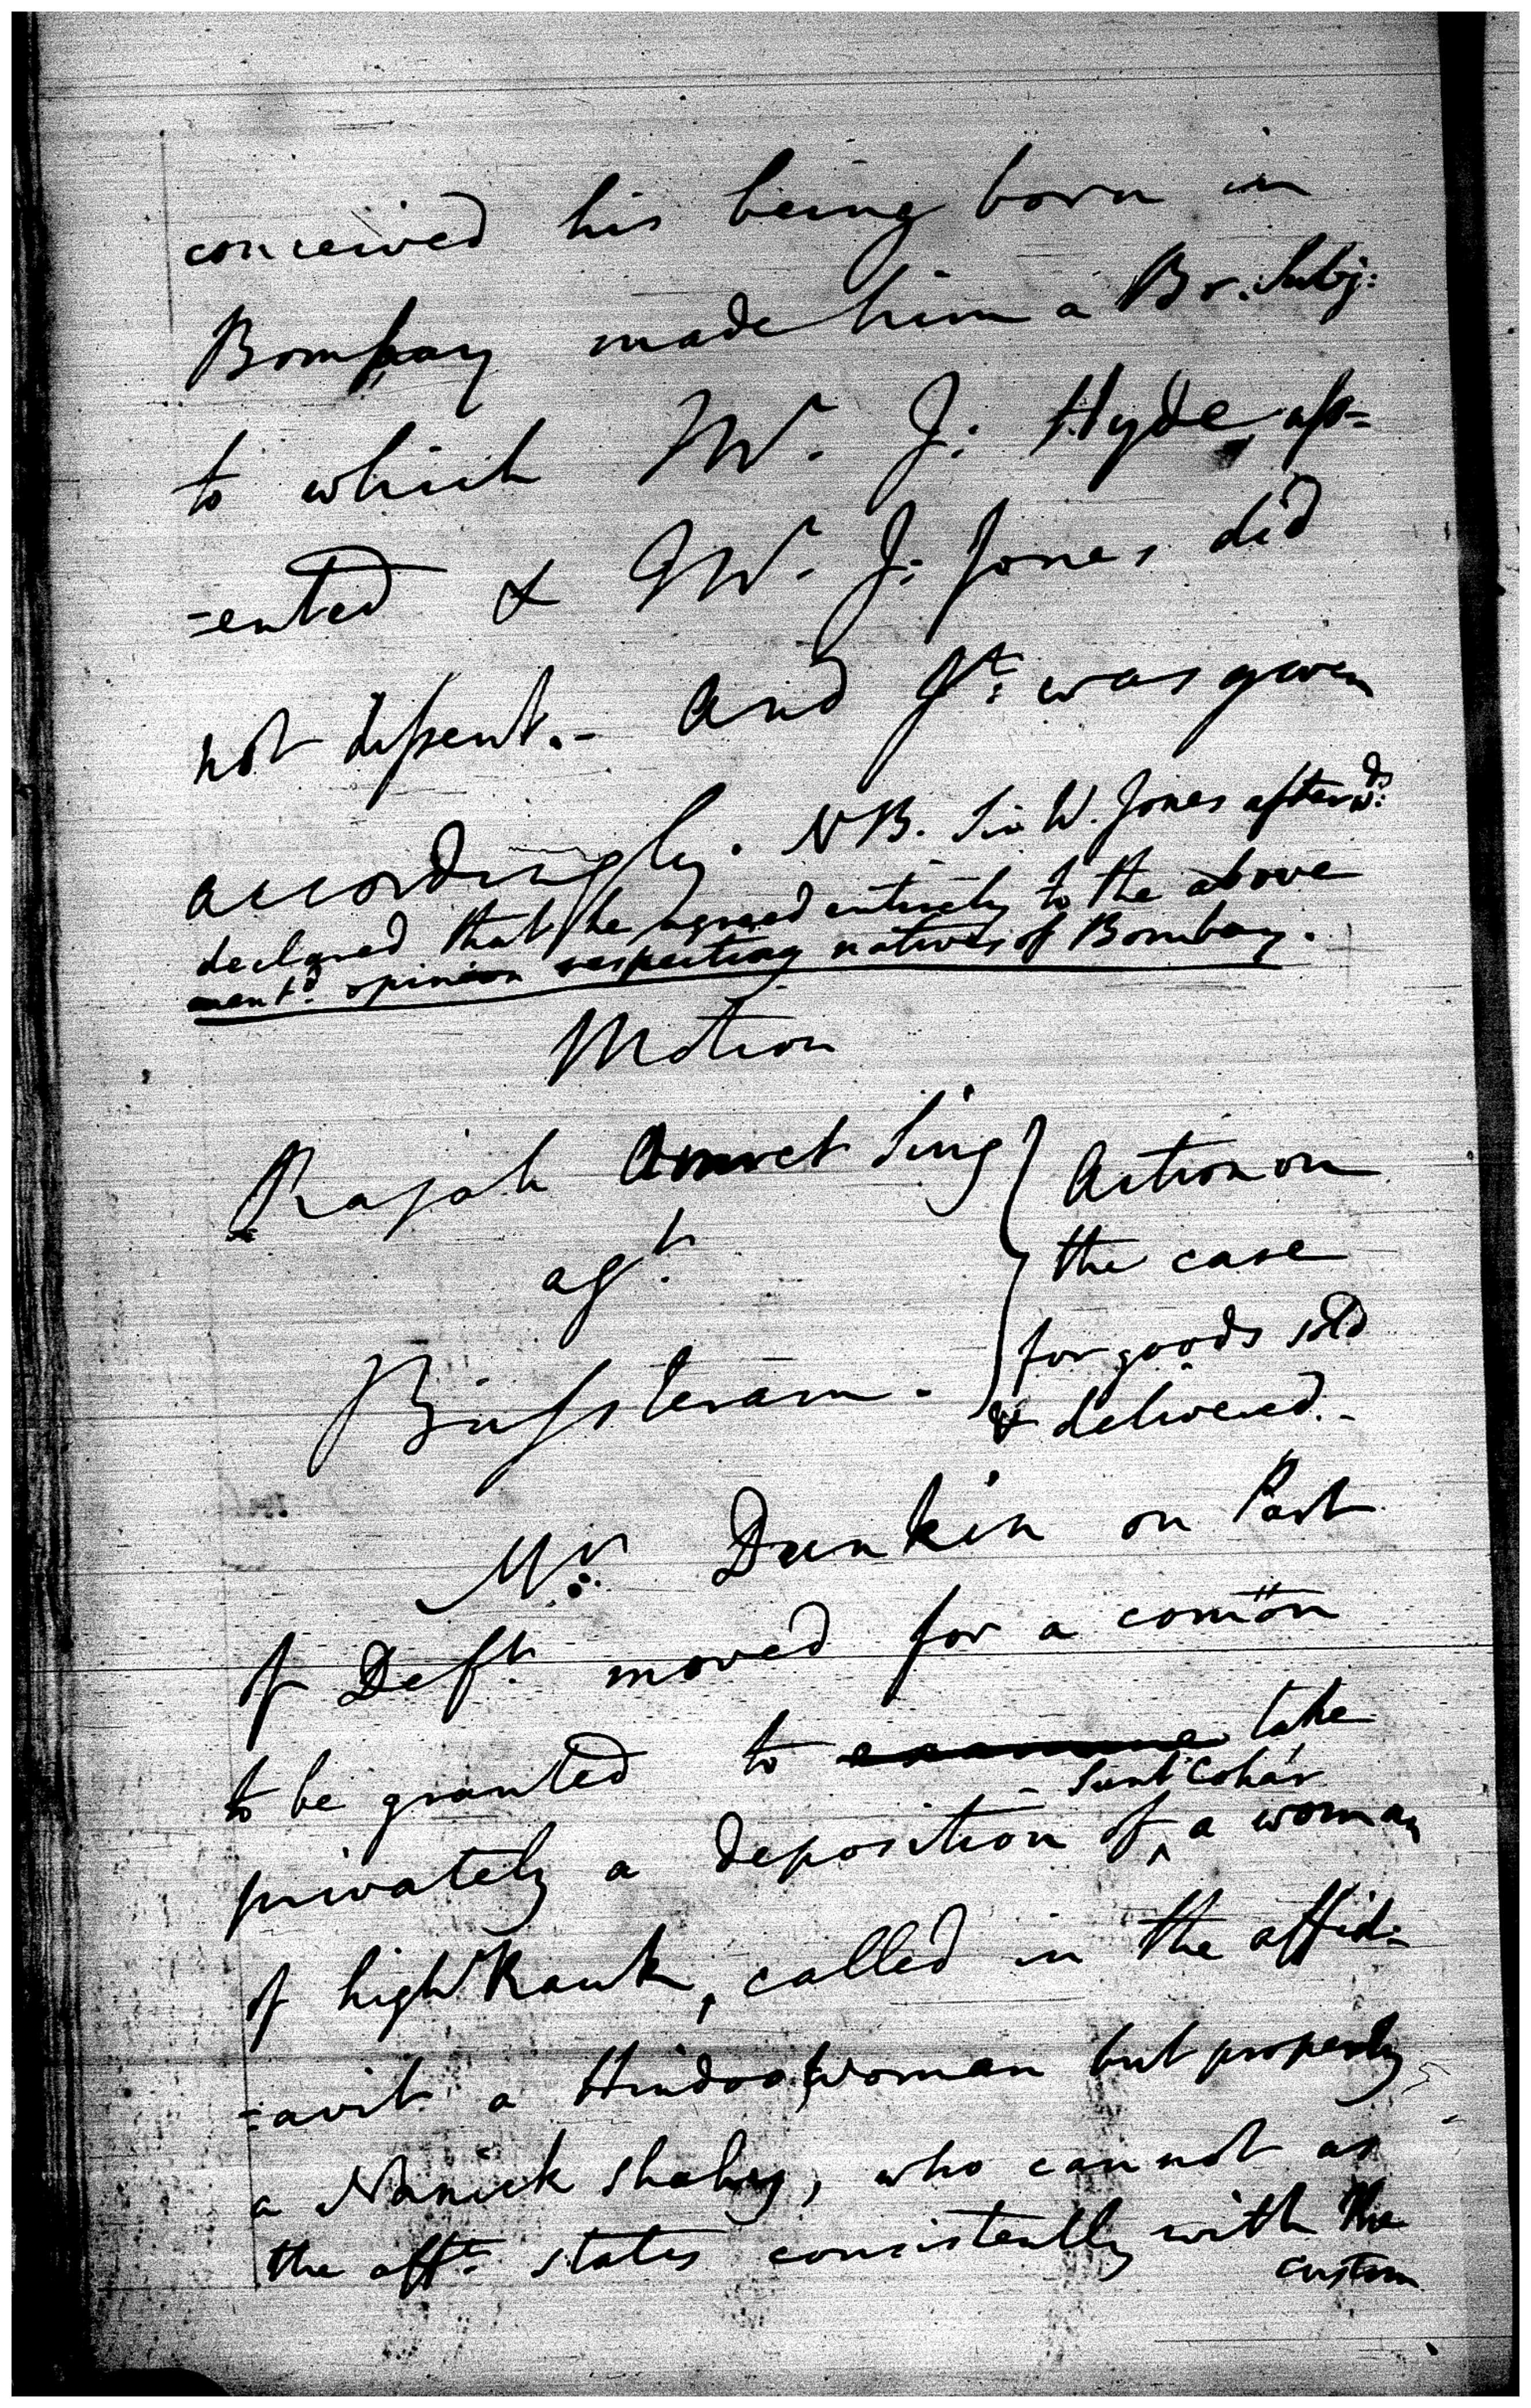 conceived his being born in
Bombay made him a Br. Subj:
to which Mr. J: Hyde ass=
=ented & Mr. J: Jones did
not dissent. - And Jt: was given
accordingly. NB. Sir W. Jones afterwds:
declared that he agreed entirely to the above
mentd. opinion respecting natives of Bombay.
Motion
Rajah Amret Sing
agt.
Bissteram.
Action on
the case
for goods sold
& delivered. -
Mr. Dunkin on Part
of Deft. moved for a comōn
to be granted to examine take
privately a deposition of Sunt Cohár a woman
of high Rank, called in the affid=
=avit a Hindoo woman but properly
a Nanick shahy, who cannot as
the afft. states consistently with the
custom